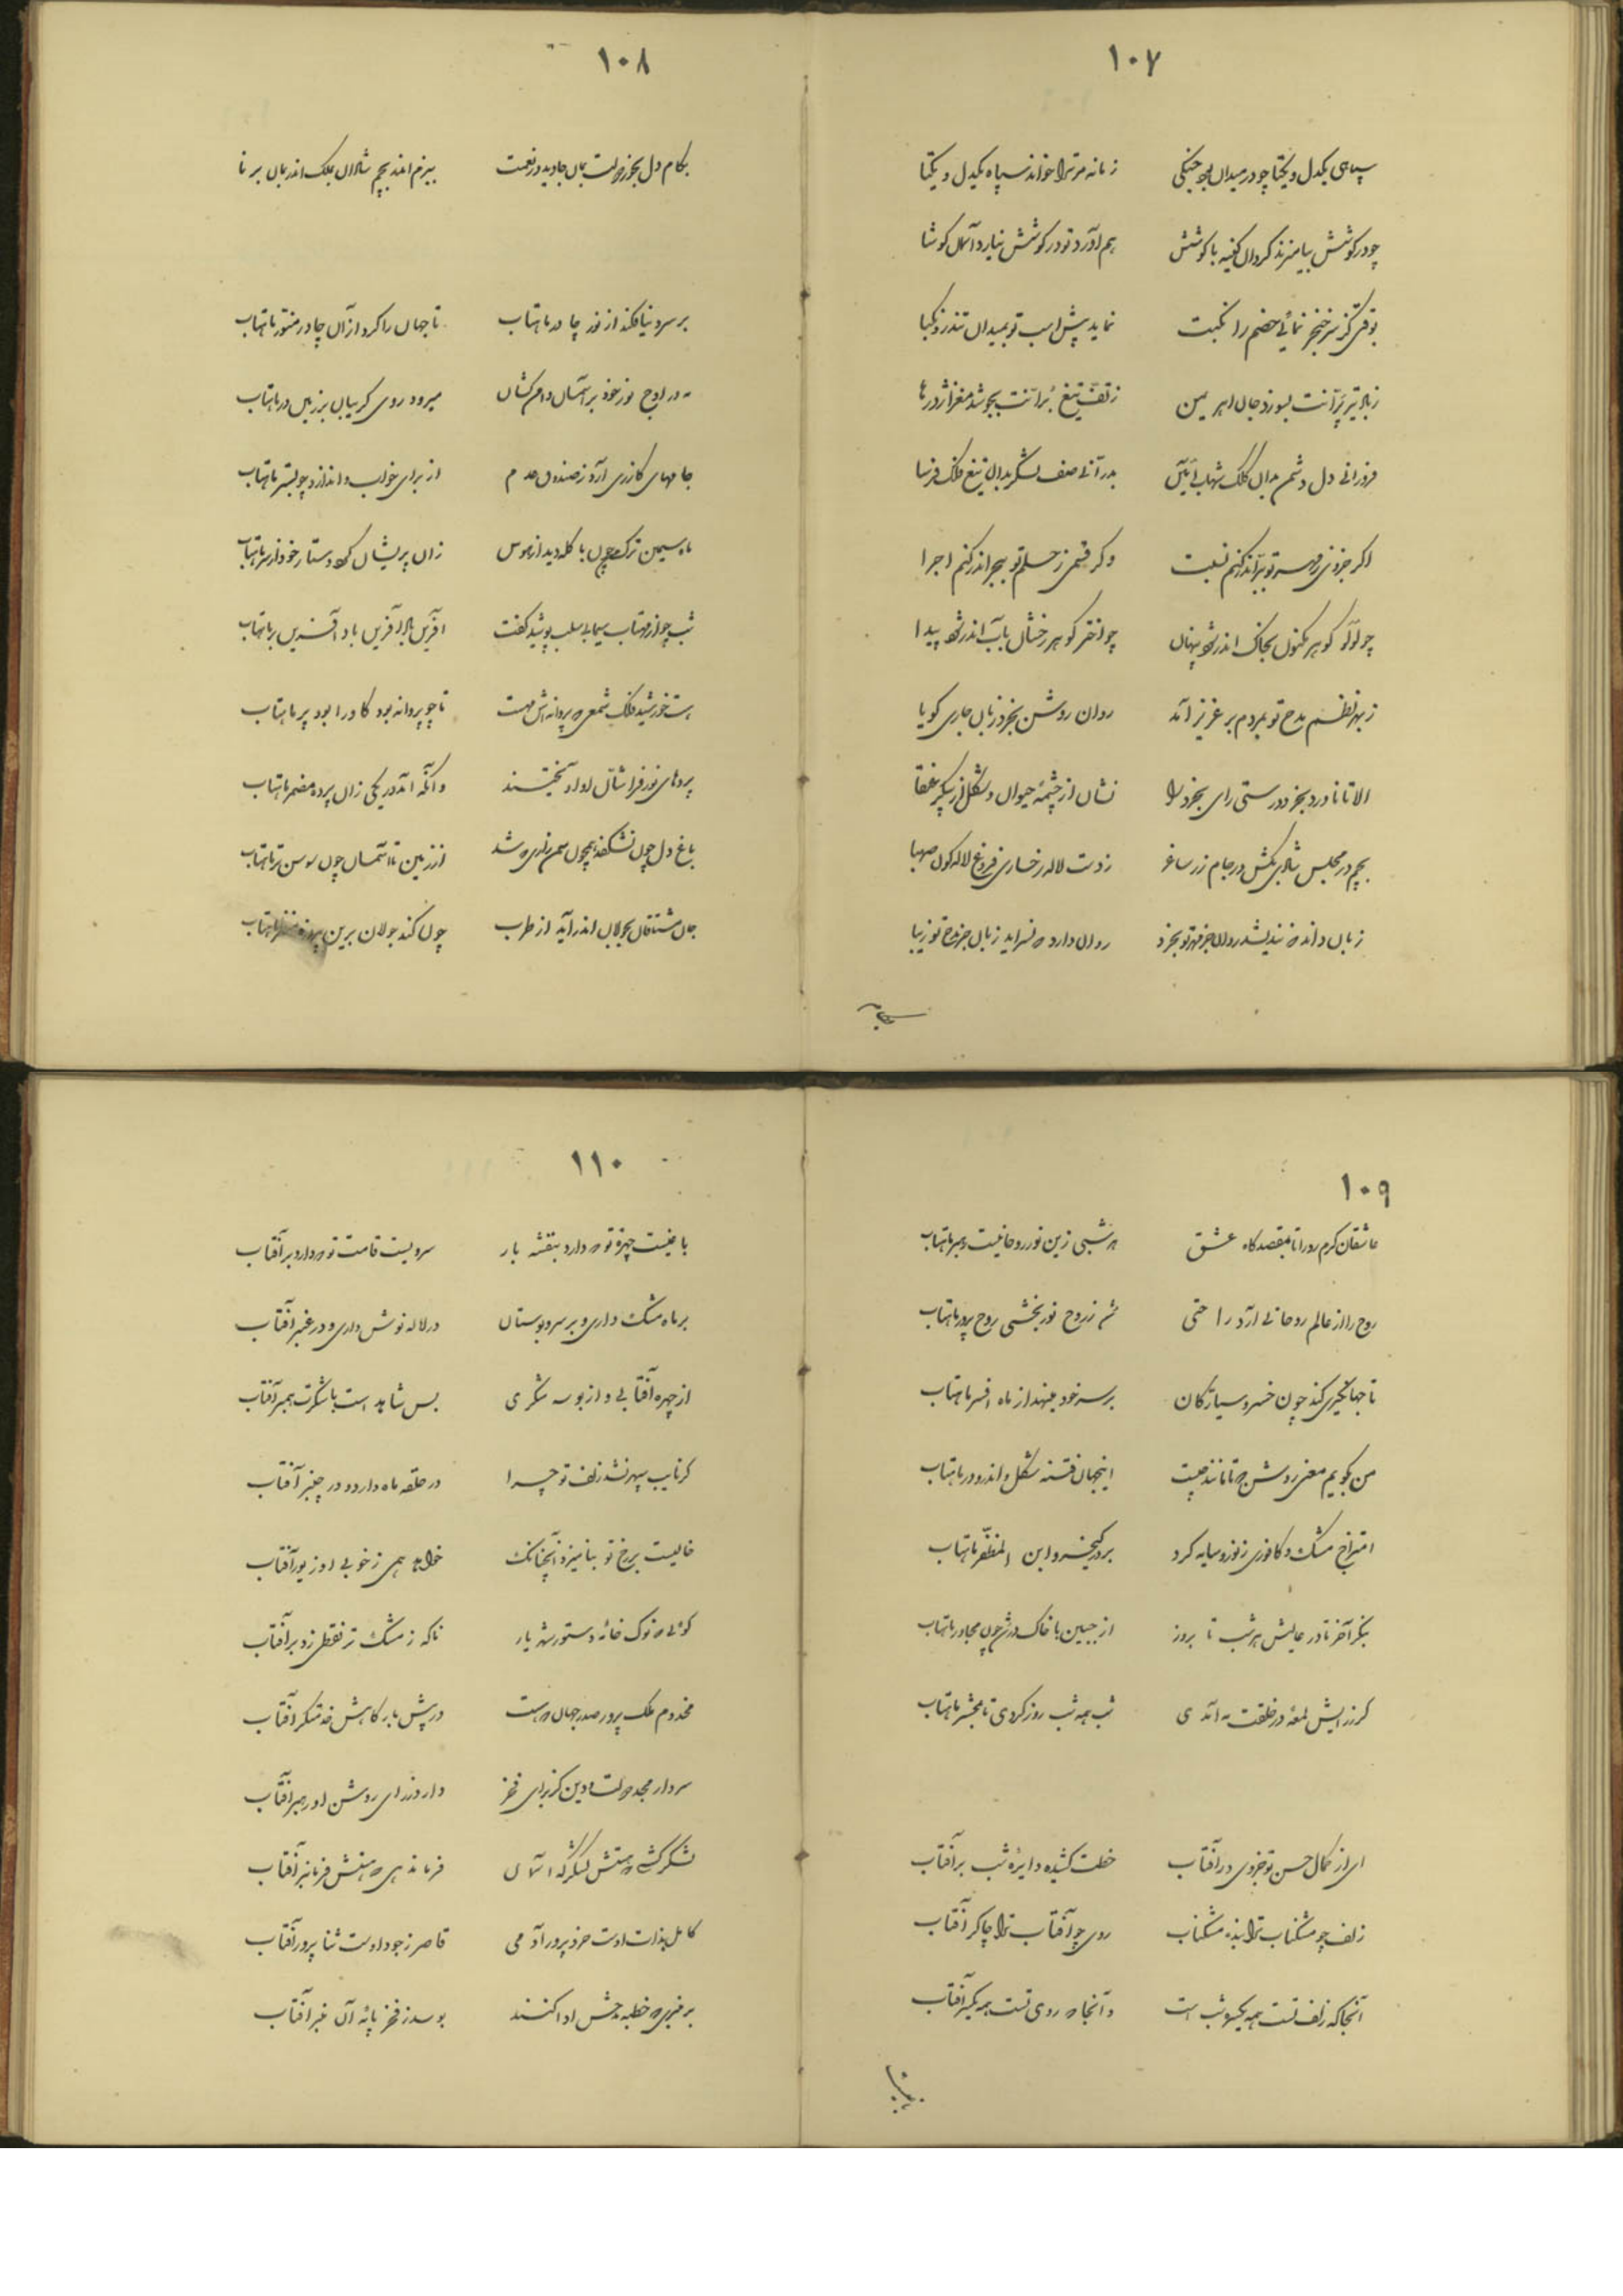 ۱۰۷
سپاهی یکدل و یکتا چو در میدان جنگی زمانه مر ترا خواند سپاه یکدل و یکتا
چو در کوشش بیامیزند کردان کینه با کوشش هم آورد تو در کوشش نیارد آسمان کوشا
بوقتی کز سر خنجر نمائی خصم را نکبت نماید پیش اسب تو بمیدان
ز تیر پرّانت بسوزد جان اهریمن ز تف تیغ برّانت بجوشد مغز اژدرها
فروزانی دل دشمن بدان کلک شهاب آیین بدرّانی صف لشکر بدان تیغ فلک فرسا
اکر جزوی ز تو ببر اندر کنم نسبت وکر قسمی ز حلم تو ببحر اندر کنم اجرا
چو لؤلؤ کوهر مکنون بخاک اندر شود پنهان چو اختر کوهر رخشان بآب اندر شود پیدا
ز بهر نظم مدح تو بمردم بر عزیز آمد روان روشن بخرد زبان جاری کویا
الا تا ناورد بخرد درستی رای بخرد را نشان از چشمهٔ حیوان و شکل از پیکر عنقا
بچم در مجلس شادی بکش در جام زر ساغر ز دست لاله رخساری فروغ لاله کون صهبا
زبان داند که نندیشد روان جز مهر تو بخرد روان دارد که نسراید زبان جز مدح تو زیبا
۱۰۸
بکام دل بخور دولت بمان جاوید در نعمت ببزم اندر بچم شادان بملک اندر بمان برنا
بر سر دنیا فکند از نور چادر ماهتاب تا جهان را کرد از آن چادر منور ماهتاب
مه در اوج نور خود بر آسمان دامن کشان میرود روی کریبان بر زمین در ماهتاب
جامهای کازری آرد ز صندوق عدم از برای خواب و اندازد چو بستر ماهتاب
ماه سیمین ترک چون با کله دید از هوس زان پریشان کرد دستار خود از سر ماهتاب
شب چو از مهتاب سیمابی سلب پوشید کفت آفرین باد آفرین باد آفرین بر ماهتاب
هست خورشید فلک شمعی که پروانه‌اش مهست تا چو پروانه بود کاورا بود پر ماهتاب
پردهای نور فراشان او آویختند وآنکه آمد در یکی زان پرده مضمر ماهتاب
باغ دل چون نشکفد همچون سمن زاری که شد از زمین تا آسمان چون سوسن تر ماهتاب
جان مشتاقان بجولان اندر آید از طرب چون کند جولان برین ماهتاب
۱۰۹
عاشقان کرم رو را تا بمقصدکاه عشق هر شبی زین نور روحانیت رهبر ماهتاب
روح را از عالم روحانی آرد راحتی هم ز روح نور بخشی روح پرور ماهتاب
تا جهانکیری کند چون خسرو سیارکان بر سر خود مینهد از ماه افسر ماهتاب
من بکویم معنی روشن که تا مانند چیست اینجهان فتنه شکل و اندرو در ماهتاب
امتزاج مشک و کافوری ز نور و سایه کرد بر در کیخسرو ابن المظفّر ماهتاب
بنکر آخر تا در عالیش هر شب تا بروز از جبین با خاک درش چون مجاور ماهتاب
کر ز رایش لمعهٔ در خلقت مه آمدی شب همه شب روز کردی تا بمحشر ماهتاب
ای از کمال حسن تو جزوی در آفتاب خطت کشیده دایرهٔ شب بر آفتاب
زلف چو مشکناب ترا بنده مشکناب روی چو آفتاب ترا چاکر آفتاب
آنجا که زلف تست همه یکسره شب است وآنجا که روی تست همه یکسر آفتاب
۱۱۰
باغیست چهرهٔ تو که دارد بنفشه بار سرویست قامت تو که دارد بر آفتاب
بر ماه مشک داری و بر سرو بوستان در لاله نوش داری و در عنبر آفتاب
از چهره آفتابی و از بوسه شکری بس شاهد است با شکرت همبر آفتاب
کر نایب سپهر نشد زلف تو چرا در حلقه ماه دارد و در چنبر آفتاب
خالیست بر رخ تو بنامیزد آنچنانک خواهد همی ز خوبی او زیور آفتاب
کوئی که نوک خامهٔ دستور شهریار ناکه ز مشک تر نقطی زد بر آفتاب
مخدوم ملک پرور صدر جهان که هست در پیش بارکاهش خدمتکر آفتاب
سردار مجد دولت و دین کز برای فخر دارد ز رای روشن او رهبر آفتاب
لشکر کشی که هستش لشکرکه آسمان فرماندهی که هستش فرمانبر آفتاب
کامل بذات اوست خرد پرور آدمی قاصر ز جود اوست ثنا پرور آفتاب
بر منبری که خطبهٔ مدحش ادا کنند بوسد ز فخر پایهٔ آن منبر آفتاب